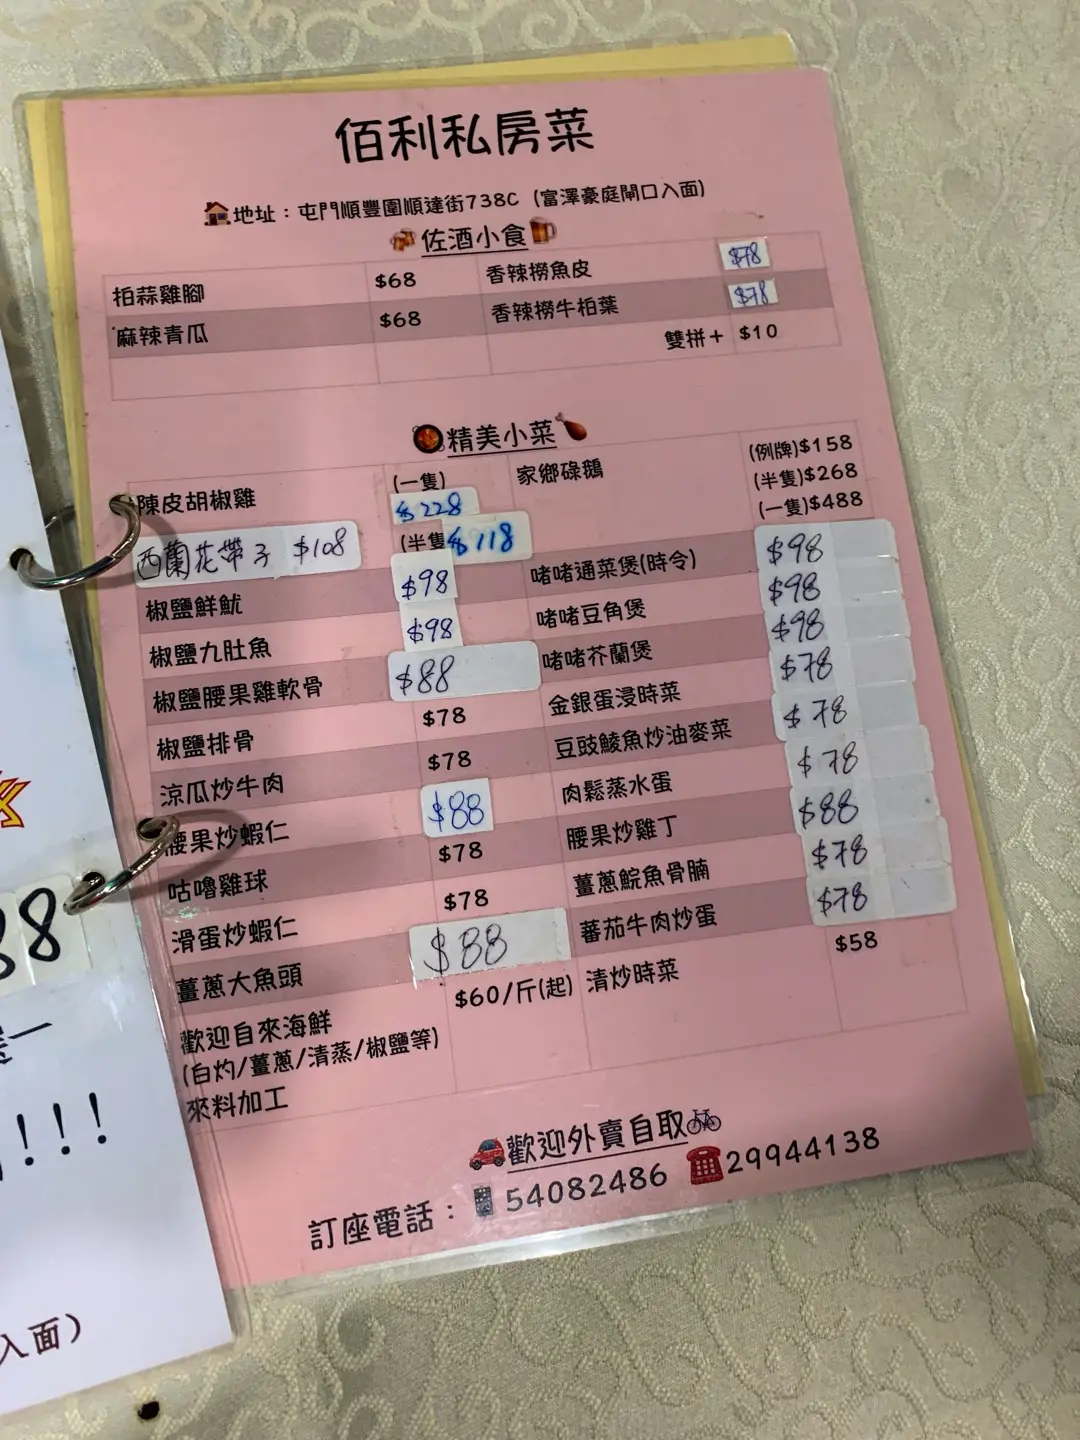 佰利私房菜
地址：屯門順豐圍順達街738C (富澤豪庭閘口入面)
佐酒小食
拍蒜雞腳 $68 香辣撈魚皮 $78
麻辣青瓜 $68 香辣撈牛柏葉 $78
雙拼＋ $10
精美小菜
陳皮胡椒雞 (一隻) $228 家鄉碌鵝 (例牌)$158
(半隻 $118 (半隻)$268
(一隻)$488
西蘭花帶子 $108
椒鹽鮮魷 $98 啫啫通菜煲(時令) $98
椒鹽九肚魚 $98 啫啫豆角煲 $98
椒鹽腰果雞軟骨 $88 啫啫芥蘭煲 $98
椒鹽排骨 $78 金銀蛋浸時菜 $78
涼瓜炒牛肉 $78 豆豉鯪魚炒油麥菜 $78
腰果炒蝦仁 $88 肉鬆蒸水蛋 $78
咕嚕雞球 $78 腰果炒雞丁 $88
滑蛋炒蝦仁 $78 薑蔥鯇魚骨腩 $78
薑蔥大魚頭 $88 蕃茄牛肉炒蛋 $78
歡迎自來海鮮 $60/斤(起) 清炒時菜 $58
(白灼/薑蔥/清蒸/椒鹽等)
來料加工
歡迎外賣自取
訂座電話： 54082486 29944138
88
!!!
入面)